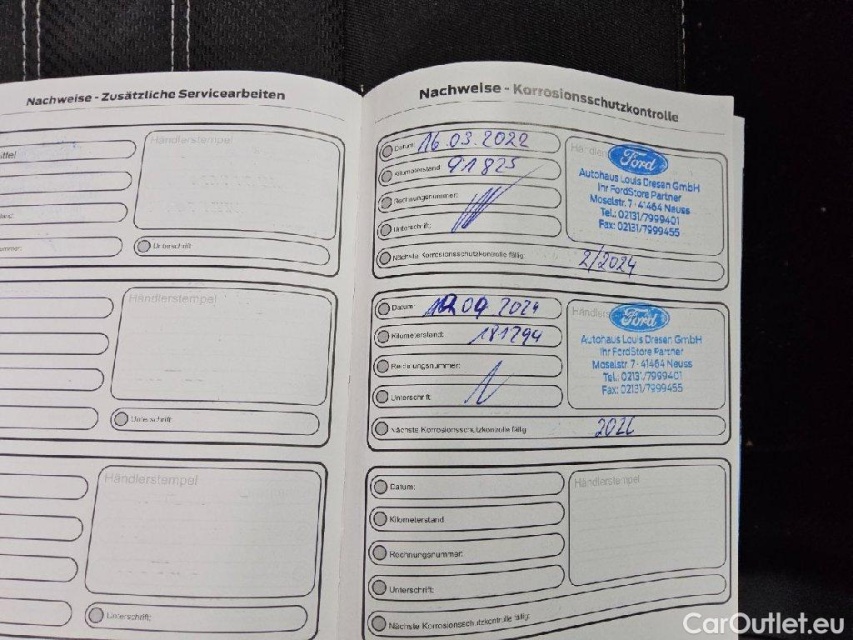 Nachweise - Zusätzliche Servicearbeiten
Händlerstempel
Unterschrift
Händlerstempel
Unterschrift:
Händlerstempel
Unterschrift:
Nachweise - Korrosionsschutzkontrolle
Datum: 16.03.2022
Kilometerstand 91825
Rechnungsnummer:
Unterschrift:
Nächste Korrosionsschutzkontrolle fällig: 2/2024
Ford
Autohaus Louis Dresen GmbH
Ihr FordStore Partner
Moselstr. 7 · 41464 Neuss
Tel.: 02131/7999401
Fax: 02131/7999455
Datum: 09 2024
Kilometerstand: 181294
Rechnungsnummer:
Unterschrift:
Nächste Korrosionsschutzkontrolle fällig: 2026
Ford
Autohaus Louis Dresen GmbH
Ihr FordStore Partner
Moselstr. 7 · 41464 Neuss
Tel.: 02131/7999401
Fax: 02131/7999455
Datum:
Kilometerstand
Rechnungsnummer:
Unterschrift:
Nächste Korrosionsschutzkontrolle fällig:
Händlerstempel
CarOutlet.eu